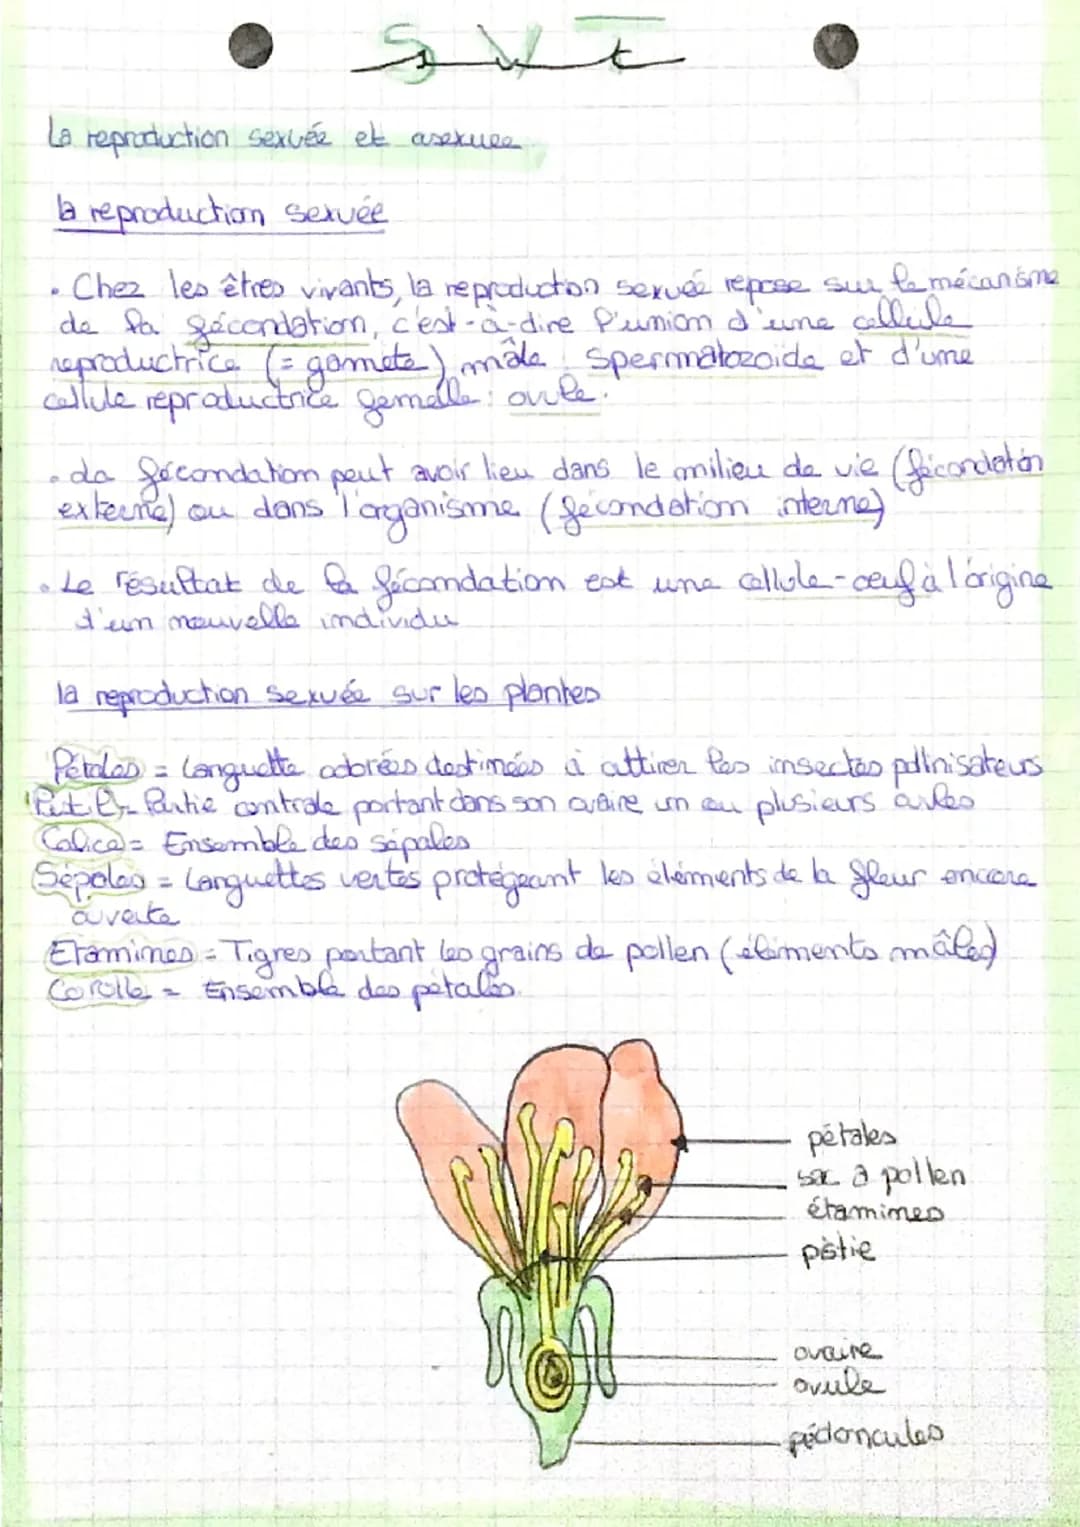 SVT
La reproduction sexuée et asexuee
la reproduction sexuée
• Chez les êtres vivants, la reproduction sexuée repose sur le mécanisme
de la fécondation, c'est-à-dire l'union d'une cellule
reproductrice (= gamète) mâle : spermatozoïde et d'une
cellule reproductrice femelle : ovule.
• La fécondation peut avoir lieu dans le milieu de vie (fécondation
externe) ou dans l'organisme (fécondation interne)
• Le résultat de la fécondation est une cellule-oeuf à l'origine
d'un nouvelle individu
la reproduction sexuée sur les plantes
Pétales = Languette colorées destinées à attirer les insectes pollinisateurs
Partie centrale portant dans son ovaire un ou plusieurs ovules
Calice = Ensemble des sépales
Sépales = Languettes vertes protégeant les éléments de la fleur encore
ouverte
Etamines = Tigres portant les grains de pollen (éléments mâles)
Corolle = Ensemble des pétales.
pétales
sac a pollen
étamines
pistie
ovaire
ovule
pédoncules